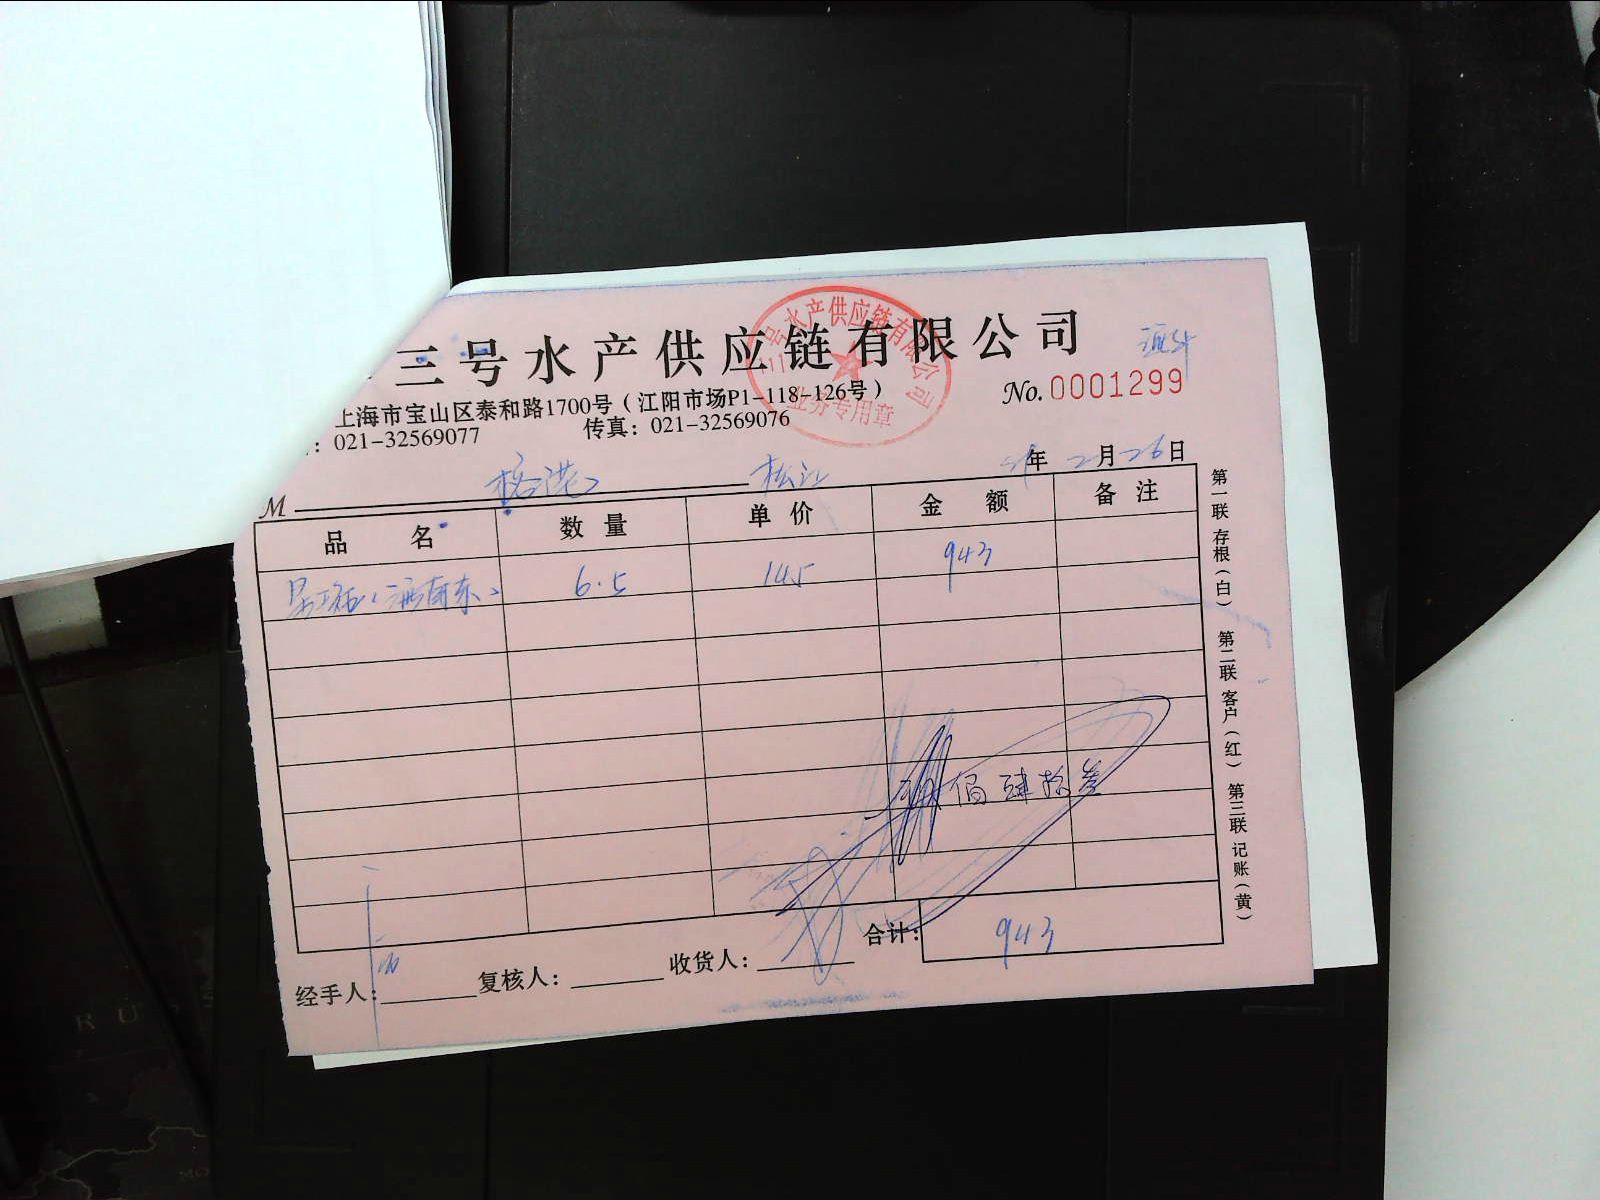 三号水产供应链有限公司
上海市宝山区泰和路1700号(江阳市场P1-118-126号)
No.0001299
:021-32569077 传真:021-32569076
三号水产供应链有限公司
业务专用章
M 松江 年 2月26日
品名 数量 单价 金额 备注
6.5 145 943
佰肆拾叁
合计: 943
经手人: 复核人: 收货人:
第一联 存根(白) 第二联 客户(红) 第三联 记账(黄)